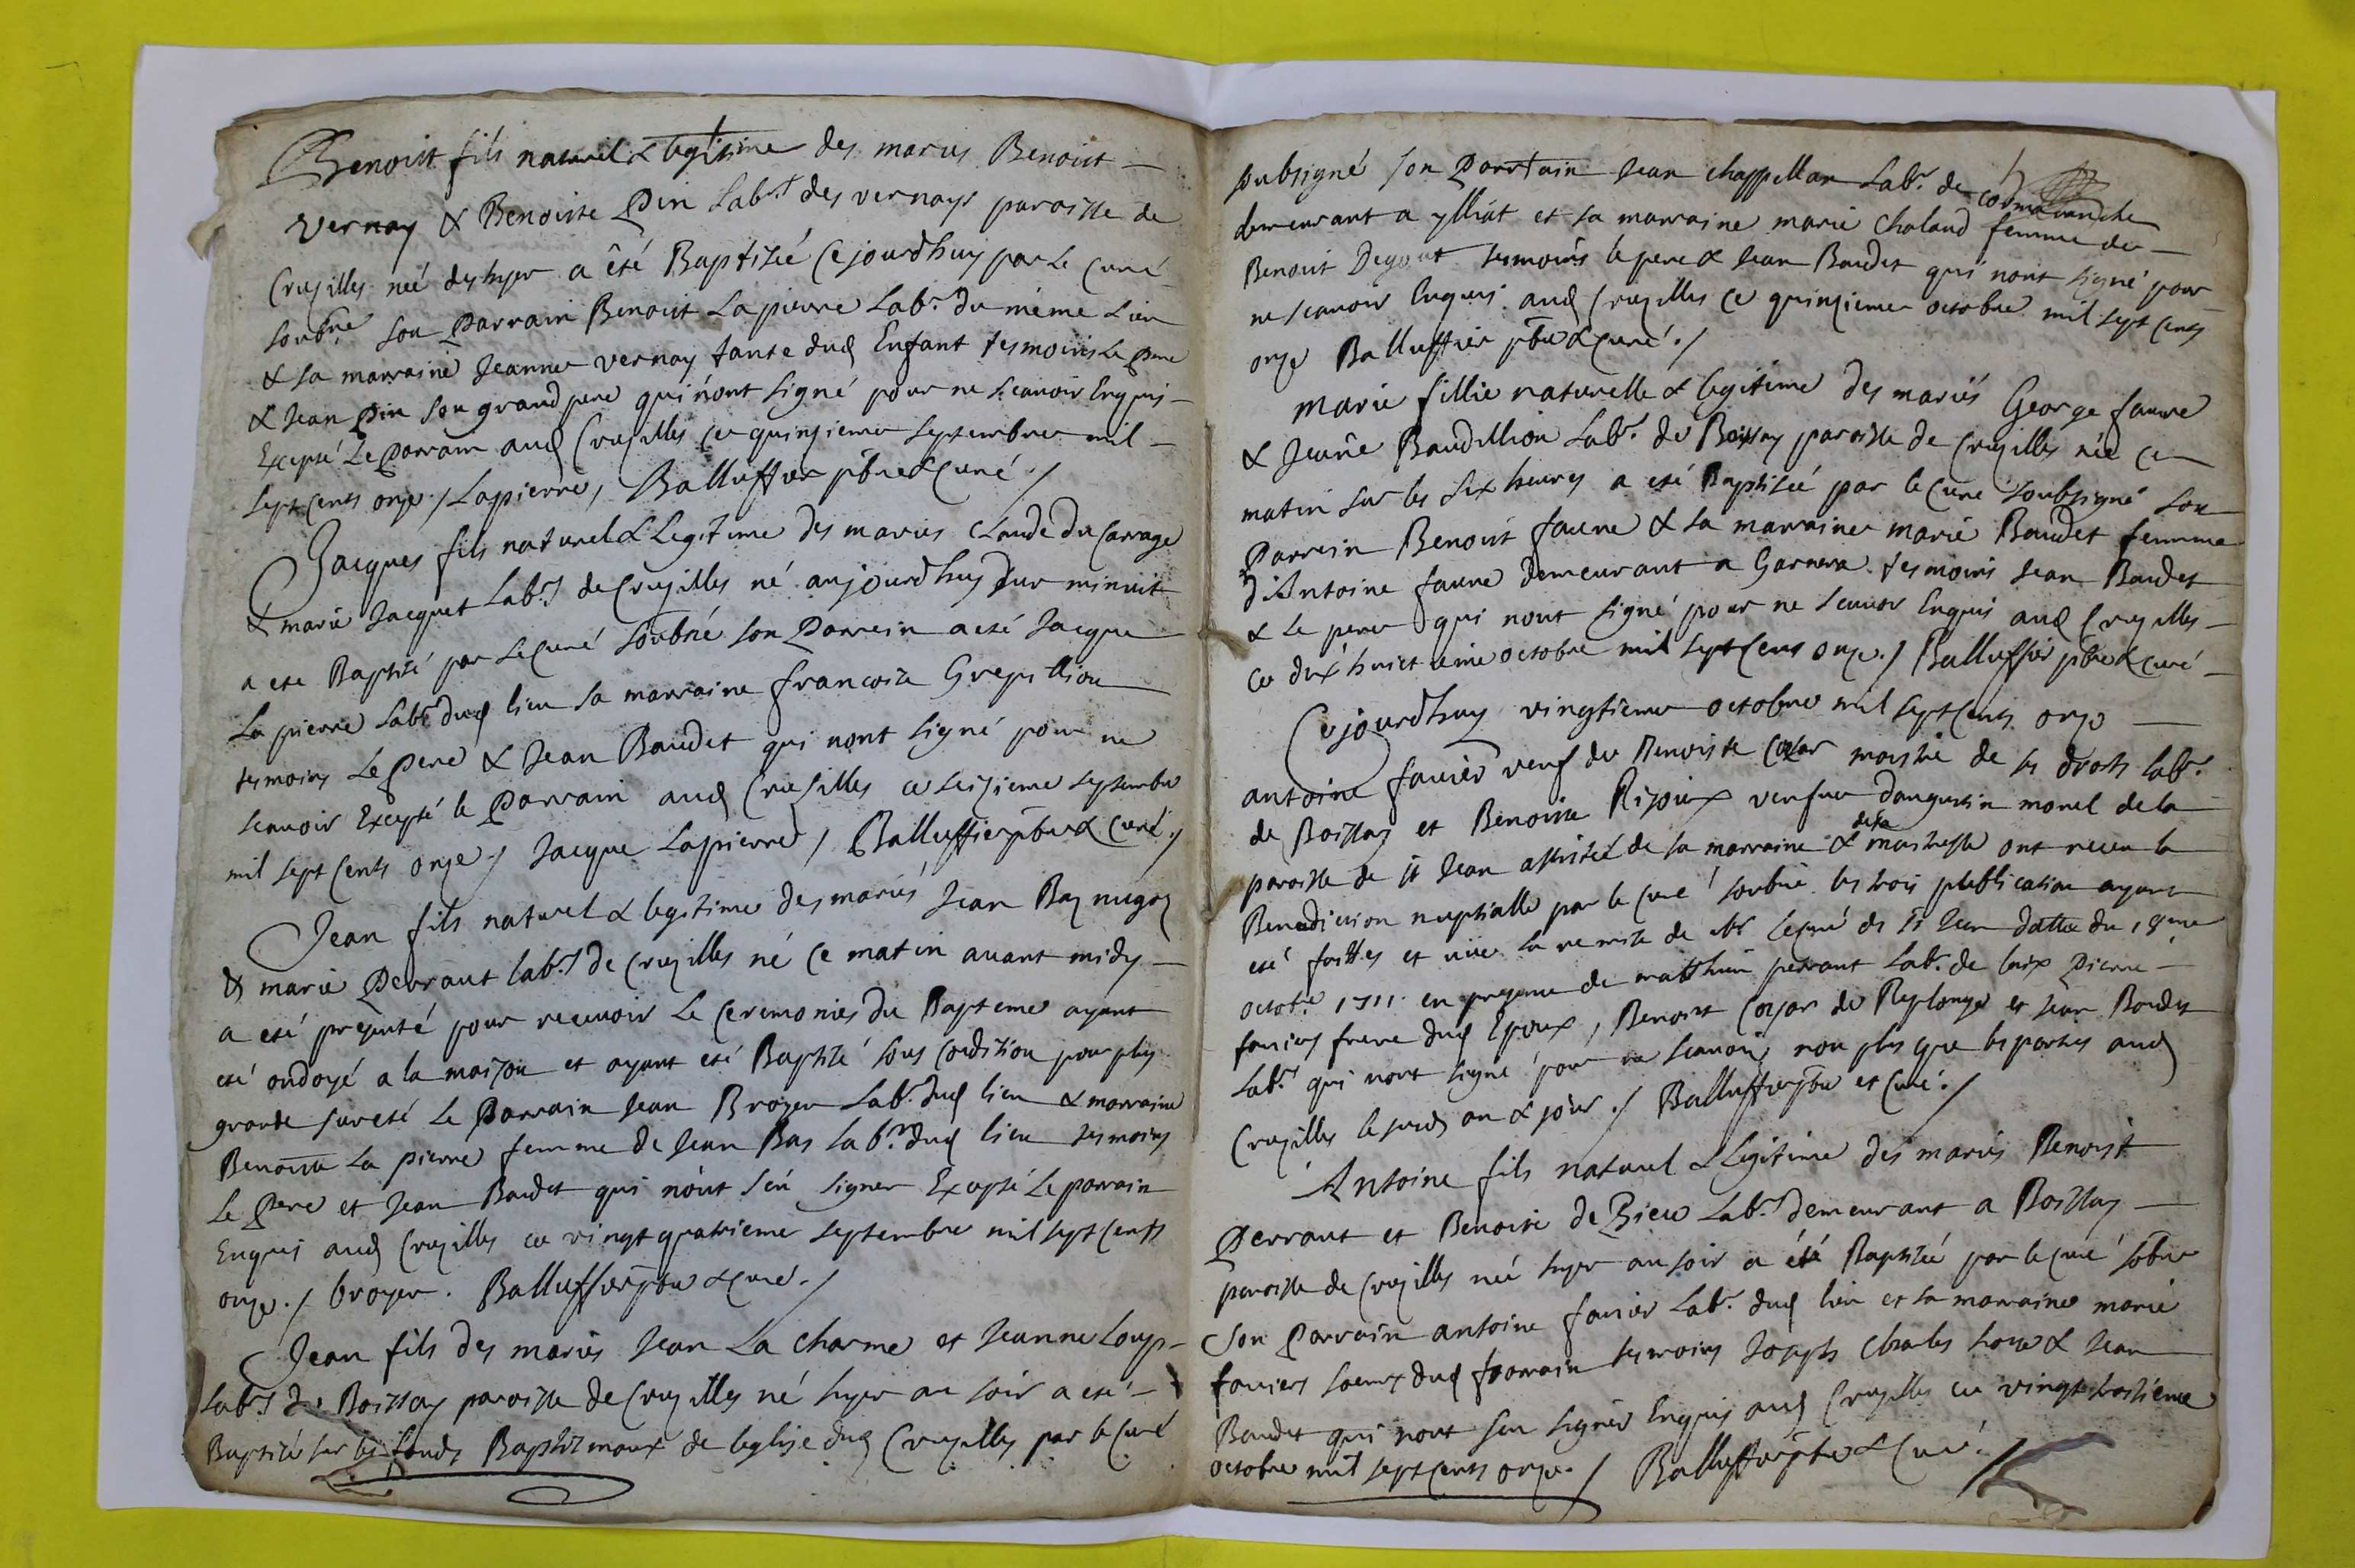 Benoist fils naturel & legitime des mariés Benoist
Vernay & Benoiste Pin Labrs des vernays paroisse de
Cruzilles né des hyer a été Baptisé Cejourdhuy par Le Curé
soubné son Parrain Benoist Lapierre Labr. du même Lieu
& sa marraine Jeanne vernay tante dud Enfant tesmoins le Pere
& Jean Pin son grand pere qui nont signé pour ne scavoir Enquis
Excepté Le Parrain aud Cruzilles ce quinzieme septembre mil
sept cents onze / Lapierre / Balluffier pbre & curé /
Jacques fils naturel & Legitime des mariés Claude Du Carrage
& marie Jacquet Labrs de Cruzilles né aujourdhuy sur minuit
a esté Baptisé par Le Curé soubné son Parrein a esté Jacque
La pierre Labr dud lieu sa marraine francoise Grepillion
tesmoins Le Pere & Jean Baudet qui nont signé pour ne
scavoir Excepté le Parrain aud Cruzilles ce seizieme septembre
mil sept cents onze / Jacque Lapierre / Balluffier pbre & curé /
Jean fils naturel & legitime des mariés Jean
& marie Perraut labrs de Cruzilles né ce matin avant midy
a esté presenté pour recevoir Le Ceremonies du Bapteme ayant
esté ondoyé a la maison et ayant esté Baptisé sous Condition pour plus
grande sureté Le Parrain Jean Broyer Labr. dud lieu & marraine
Benoiste La pierre femme de Jean Bas labr. dud lieu tesmoins
Le Pere et Jean Baudet qui nont sçu signer Excepté Le parrain
Enquis aud Cruzilles ce vingt quatrieme septembre mil sept cents
onze. / broyer. Balluffier pbre & curé. /
Jean fils des mariés Jean La Charme et Jeanne Loup
Labrs de Boissay paroisse de Cruzilles né hyer au soir a esté
Baptisé sur les fonds Baptismaux de leglise dud Cruzilles par le Curé
soubsigné son Parrain Jean Chappellan Labr. de cormaranche
demeurant a ylliat et sa marraine marie Chaland femme de
Benoist Degout tesmoins le pere & Jean Baudet qui nont signé pour
ne scavoir Enquis aud Cruzilles ce quinzieme octobre mil sept cents
onze Balluffier pbre & curé. /
Marie fillie naturelle & legitime des mariés George faure
& Jeane Baudillion Labr. de Boissay paroisse de Cruzilles née ce
matin sur les six heures a esté Baptisée par le Curé soubsigné son
Parrein Benoist faure & sa marraine marie Baudet femme
d'Antoine faure demeurant a Garnera tesmoins Jean Baudet
& Le pere qui nont signé pour ne scavoir Enquis aud Cruzilles
ce dix huictieme octobre mil sept cens onze. / Balluffier pbre & curé
Cejourdhuy vingtieme octobre mil sept cents onze
antoine favier veuf de Benoiste maistre de ses droits labr.
de Boissay et Benoiste Rizoux veufve daugustin morel de la
paroisse de st Jean assistée de sa marraine & de sa maistresse ont receu la
Benediction nuptialle par le Curé soubné les trois publication ayant
esté faittes et vue la remise de Mr Le curé de St Jean datte du 18me
octobr 1711. en presence de matthieu perraut Labr. de Pierre
faviers frere dud Epoux, Benoist de Replonge et Jean Baudet
Labrs qui nont signé pour ne scavoir non plus que les parties aud
Cruzilles le susd an & jour. / Balluffier pbre et curé. /
Antoine fils naturel & Legitime des mariés Benoist
Perraut et Benoite de Brieu Labrs demeurant a Boissay
paroisse de Cruzilles né hyer au soir a été Baptisée par le curé sobné
Son Parrain antoine favier Labr. dud lieu et sa marraine marie
faviers soeur dud parrain tesmoins Joseph Charles & Jean
Baudet qui nont sçu signer Enquis aud Cruzilles ce vingt troisieme
octobre mil sept cents onze. / Balluffier pbre & Curé. /